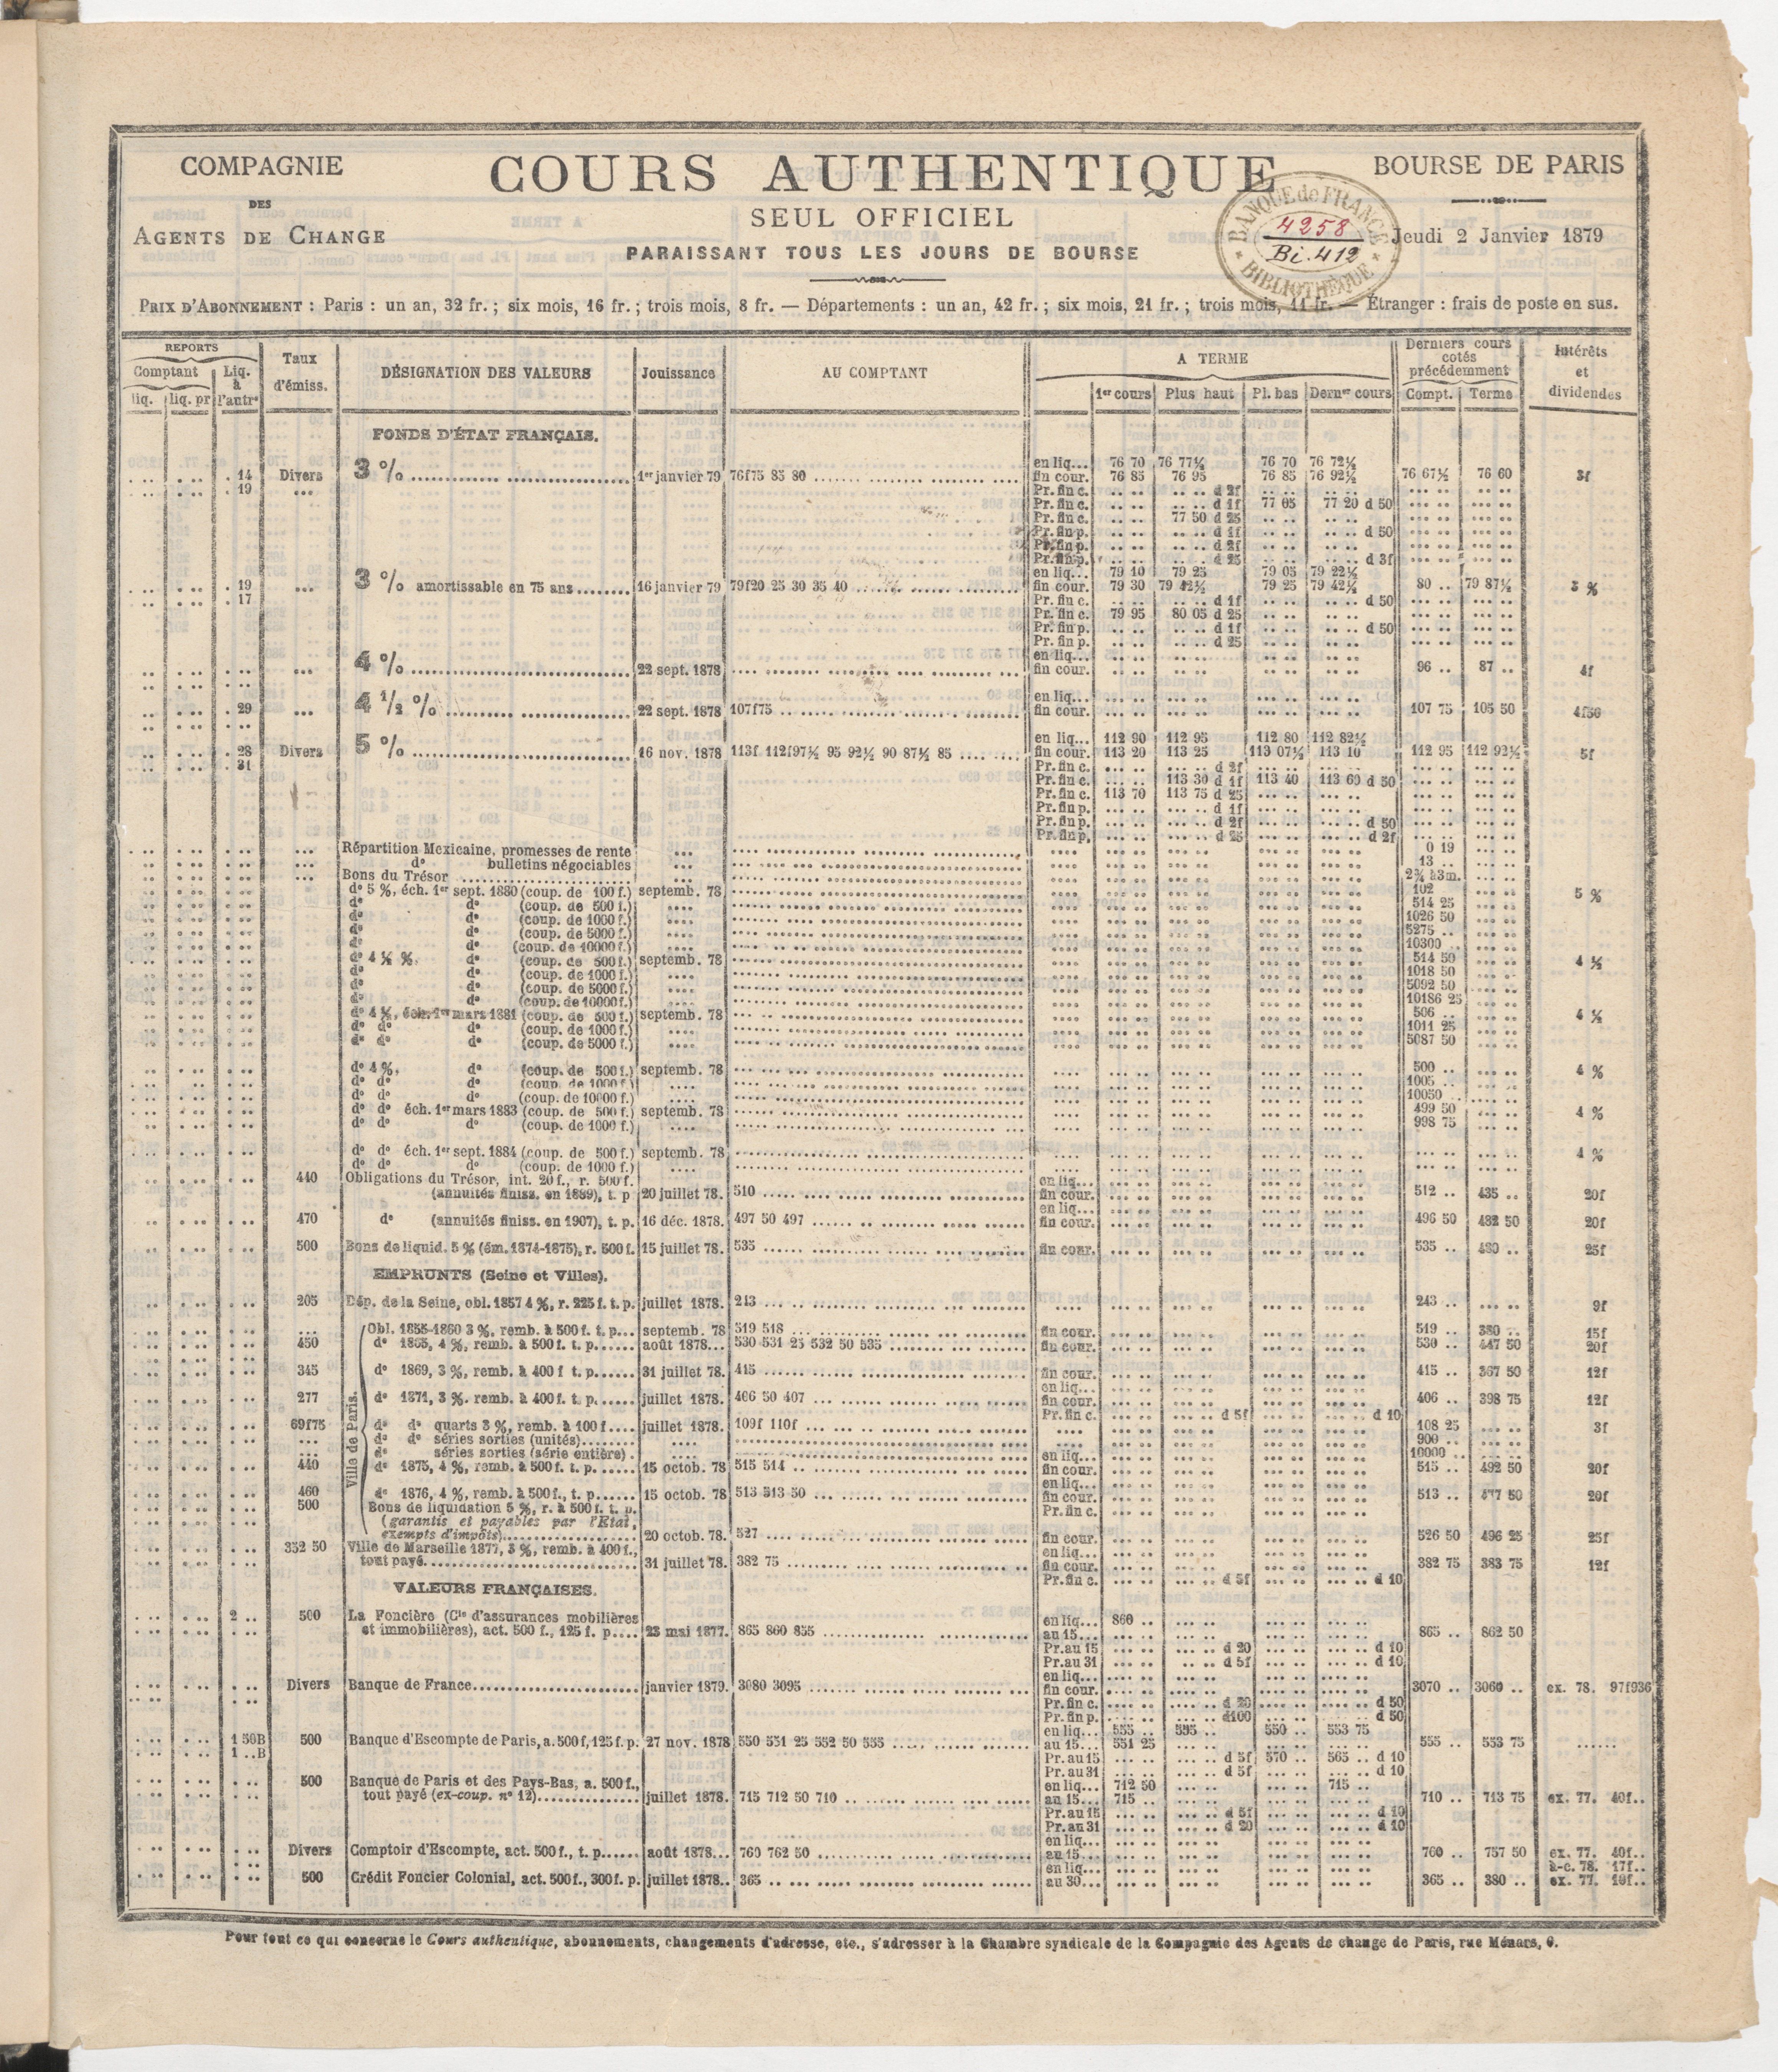 COMPAGNIE
DES
AGENTS DE CHANGE
COURS AUTHENTIQUE
SEUL OFFICIEL
PARAISSANT TOUS LES JOURS DE BOURSE
BOURSE DE PARIS
Jeudi 2 Janvier 1879
BANQUE de FRANCE
4258
Bi. 412
BIBLIOTHÈQUE
PRIX D'ABONNEMENT : Paris : un an, 32 fr. ; six mois, 16 fr. ; trois mois, 8 fr. — Départements : un an, 42 fr. ; six mois, 21 fr. ; trois mois, 11 fr. — Étranger : frais de poste en sus.
REPORTS
Comptant Liq. à l'autre
liq. liq. pr
Taux d'émiss.
DÉSIGNATION DES VALEURS
Jouissance
AU COMPTANT
A TERME
1er cours Plus haut Pl. bas Dernrs cours
Derniers cours cotés précédemment
Compt. Terme
Intérêts et dividendes
FONDS D'ÉTAT FRANÇAIS.
en liq... 76 70 76 77½ 76 70 76 72½
14 Divers 3 % 1er janvier 79 76f75 85 80 fin cour. 76 85 76 95 76 85 76 92½ 76 67½ 76 60 3f
19 ... Pr. fin c. d 2f
Pr. fin c. d 1f 77 05 77 20 d 50
Pr. fin c. 77 50 d 25
Pr. fin p. d 1f d 50
Pr. fin p. d 2f
Pr. fin p. d 25 d 3f
en liq... 79 10 79 25 79 05 79 22½
19 ... 3 % amortissable en 75 ans 16 janvier 79 79f20 25 30 35 40 fin cour. 79 30 79 42½ 79 25 79 42½ 80 .. 79 87½ 3 %
17 Pr. fin c. d 1f d 50
Pr. fin c. 79 95 80 05 d 25
Pr. fin p. d 1f d 50
Pr. fin p. d 25
en liq...
4 % 22 sept. 1878 fin cour. 96 .. 87 .. 4f
en liq...
29 ... 4 1/2 % 22 sept. 1878 107f75 fin cour. 107 75 105 50 4f50
en liq... 112 90 112 95 112 80 112 82½
28 Divers 5 % 16 nov. 1878 113f 112f97½ 95 92½ 90 87½ 85 fin cour. 113 20 113 25 113 07½ 113 10 112 95 112 92½ 5f
31 Pr. fin c. d 2f
Pr. fin c. 113 30 d 1f 113 40 113 60 d 50
Pr. fin c. 113 70 113 75 d 25
Pr. fin p. d 1f
Pr. fin p. d 2f d 50
Pr. fin p. d 25 d 2f
Répartition Mexicaine, promesses de rente 0 19
do bulletins négociables 13 ..
Bons du Trésor 2¾ à 3m.
do 5 %, éch. 1er sept. 1880 (coup. de 100 f.) septemb. 78 102 5 %
do do (coup. de 500 f.) 514 25
do do (coup. de 1000 f.) 1026 50
do do (coup. de 5000 f.) 5275 ..
do do (coup. de 10000 f.) 10300 ..
do 4 ½ %, do (coup. de 500 f.) septemb. 78 514 50 4 ½
do do (coup. de 1000 f.) 1018 50
do do (coup. de 5000 f.) 5092 50
do do (coup. de 10000 f.) 10186 25
do 4 ½, éch. 1er mars 1881 (coup. de 500 f.) septemb. 78 506 .. 4 ½
do do do (coup. de 1000 f.) 1011 25
do do do (coup. de 5000 f.) 5087 50
do 4 %, do (coup. de 500 f.) septemb. 78 500 .. 4 %
do do do (coup. de 1000 f.) 1005 ..
do do do (coup. de 10000 f.) 10050
do do éch. 1er mars 1883 (coup. de 500 f.) septemb. 78 499 50 4 %
do do do (coup. de 1000 f.) 998 75
do do éch. 1er sept. 1884 (coup. de 500 f.) septemb. 78 4 %
do do do (coup. de 1000 f.)
440 Obligations du Trésor, int. 20 f., r. 500 f. en liq...
(annuités finiss. en 1889), t. p 20 juillet 78. 510 fin cour. 512 .. 435 .. 20f
en liq...
470 do (annuités finiss. en 1907), t. p. 16 déc. 1878. 497 50 497 fin cour. 496 50 482 50 20f
500 Bons de liquid. 5 % (ém. 1874-1875), r. 500 f. 15 juillet 78. 535 fin cour. 535 .. 480 .. 25f
EMPRUNTS (Seine et Villes).
205 Dép. de la Seine, obl. 1857 4 %, r. 225 f. t. p. juillet 1878. 243 243 .. 9f
Ville de Paris.
Obl. 1855-1860 3 %, remb. à 500 f. t. p... septemb. 78 519 518 fin cour. 519 .. 15f
450 do 1865, 4 %, remb. à 500 f. t. p. août 1878... 530 531 25 532 50 535 fin cour. 530 .. 447 50 20f
345 do 1869, 3 %, remb. à 400 f t. p. 31 juillet 78. 415 fin cour. 415 .. 367 50 12f
en liq...
277 do 1871, 3 %. remb. à 400 f. t. p. juillet 1878. 406 50 407 fin cour. 406 .. 398 75 12f
Pr. fin c. d 5f d 10
69f75 do do quarts 3 %, remb. à 100 f. juillet 1878. 109f 110f 108 25 3f
do do séries sorties (unités) 900 ..
do séries sorties (série entière) 10000 ..
en liq...
440 do 1875, 4 %, remb. à 500 f. t. p. 15 octob. 78 515 514 fin cour. 515 .. 492 50 20f
en liq...
460 do 1876, 4 %, remb. à 500 f., t. p. 15 octob. 78 513 513 50 fin cour. 513 .. 477 50 20f
500 Bons de liquidation 5 %, r. à 500 f. t. p. Pr. fin c.
(garantis et payables par l'Etat,
exempts d'impôts) 20 octob. 78. 527 fin cour. 526 50 496 25 25f
352 50 Ville de Marseille 1877, 3 %, remb. à 400 f., en liq...
tout payé 31 juillet 78. 382 75 fin cour. 382 75 383 75 12f
Pr. fin c. d 5f d 10
VALEURS FRANÇAISES.
2 .. 500 La Foncière (Cie d'assurances mobilières en liq... 860 ..
et immobilières), act. 500 f., 125 f. p. 23 mai 1877. 865 860 855 au 15... 865 .. 862 50
Pr. au 15 d 20 d 10
Pr. au 31 d 5f d 10
en liq...
Divers Banque de France janvier 1879. 3080 3095 fin cour. 3070 .. 3060 .. ex. 78. 97f936
Pr. fin c. d 20 d 50
Pr. fin p. d100 d 50
en liq... 555 .. 595 .. 550 .. 553 75
1 50B 500 Banque d'Escompte de Paris, a. 500 f, 125 f. p. 27 nov. 1878 550 551 25 552 50 555 au 15... 551 25 555 .. 553 75
1 ..B Pr. au 15 d 5f 570 .. 565 .. d 10
Pr. au 31 d 5f d 10
500 Banque de Paris et des Pays-Bas, a. 500 f., en liq... 712 50 715 ..
tout payé (ex-coup. no 12) juillet 1878. 715 712 50 710 au 15... 715 .. 710 .. 713 75 ex. 77. 40f..
Pr. au 15 d 5f d 10
Pr. au 31 d 20 d 10
en liq...
Divers Comptoir d'Escompte, act. 500 f., t. p. août 1878... 760 762 50 au 15... 760 .. 757 50 ex. 77. 40f..
en liq... à-c. 78. 17f..
500 Crédit Foncier Colonial, act. 500 f., 300 f. p. juillet 1878.. 365 au 30... 365 .. 380 .. ex. 77.
Pour tout ce qui concerne le Cours authentique, abonnements, changements d'adresse, etc., s'adresser à la Chambre syndicale de la Compagnie des Agents de change de Paris, rue Ménars, 6.